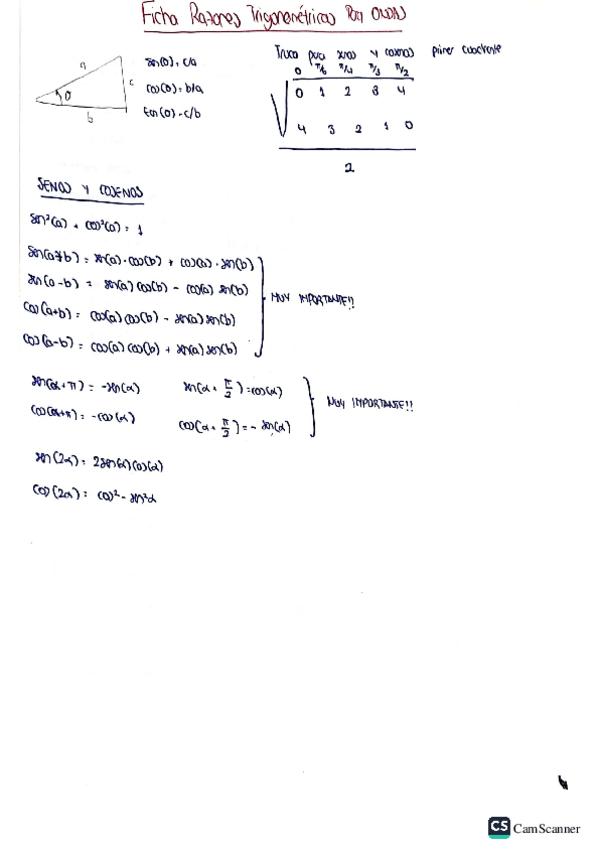 Ficha Razones Trigonométricas Por ONDAS
a
c
θ
b
sen(θ)= c/a
cos(θ)= b/a
tan(θ)= c/b
Truco para senos y cosenos primer cuadrante
0 π/6 π/4 π/3 π/2
0 1 2 3 4
4 3 2 1 0
2
SENOS Y COSENOS
sen²(a) + cos²(a) = 1
sen(a+b) = sen(a)·cos(b) + cos(a)·sen(b)
sen(a-b) = sen(a)cos(b) - cos(a)sen(b)
cos(a+b) = cos(a)cos(b) - sen(a)sen(b)
cos(a-b) = cos(a)cos(b) + sen(a)sen(b)
MUY IMPORTANTE!!
sen(α+π) = -sen(α) sen(α+π/2)=cos(α)
cos(α+π) = -cos(α) cos(α+π/2)=-sen(α)
MUY IMPORTANTE!!
sen(2α) = 2sen(α)cos(α)
cos(2α) = cos²-sen²α
CS CamScanner